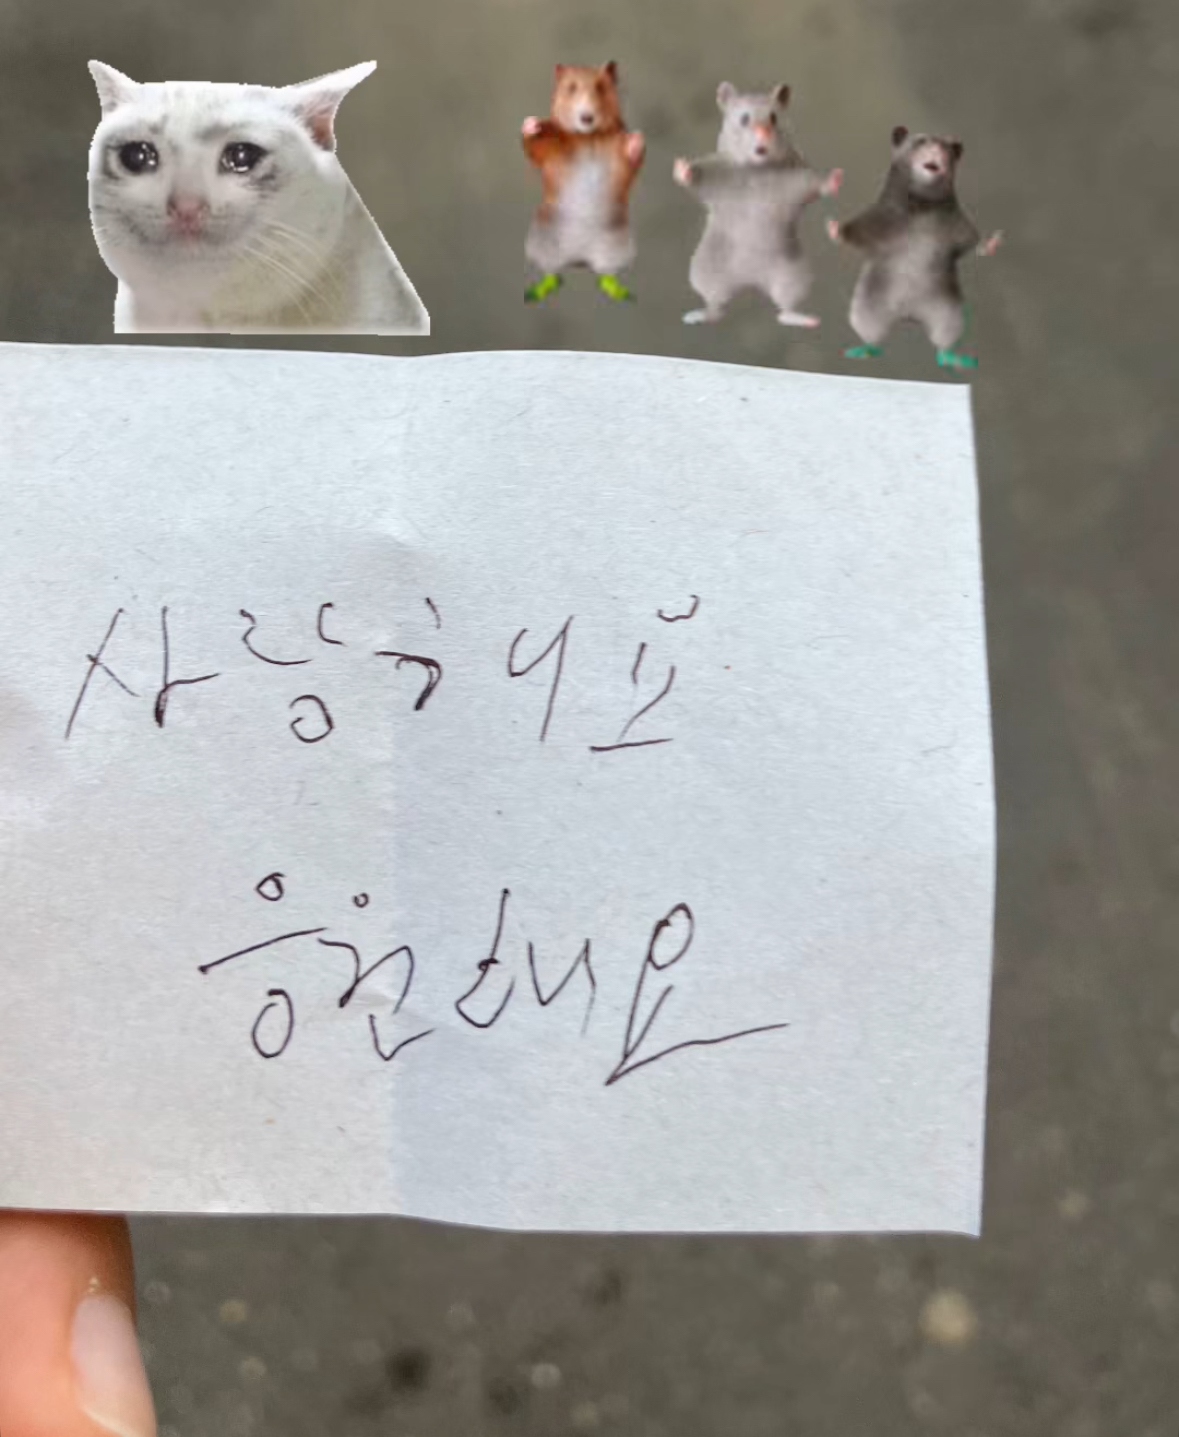 사랑해요
응원해요